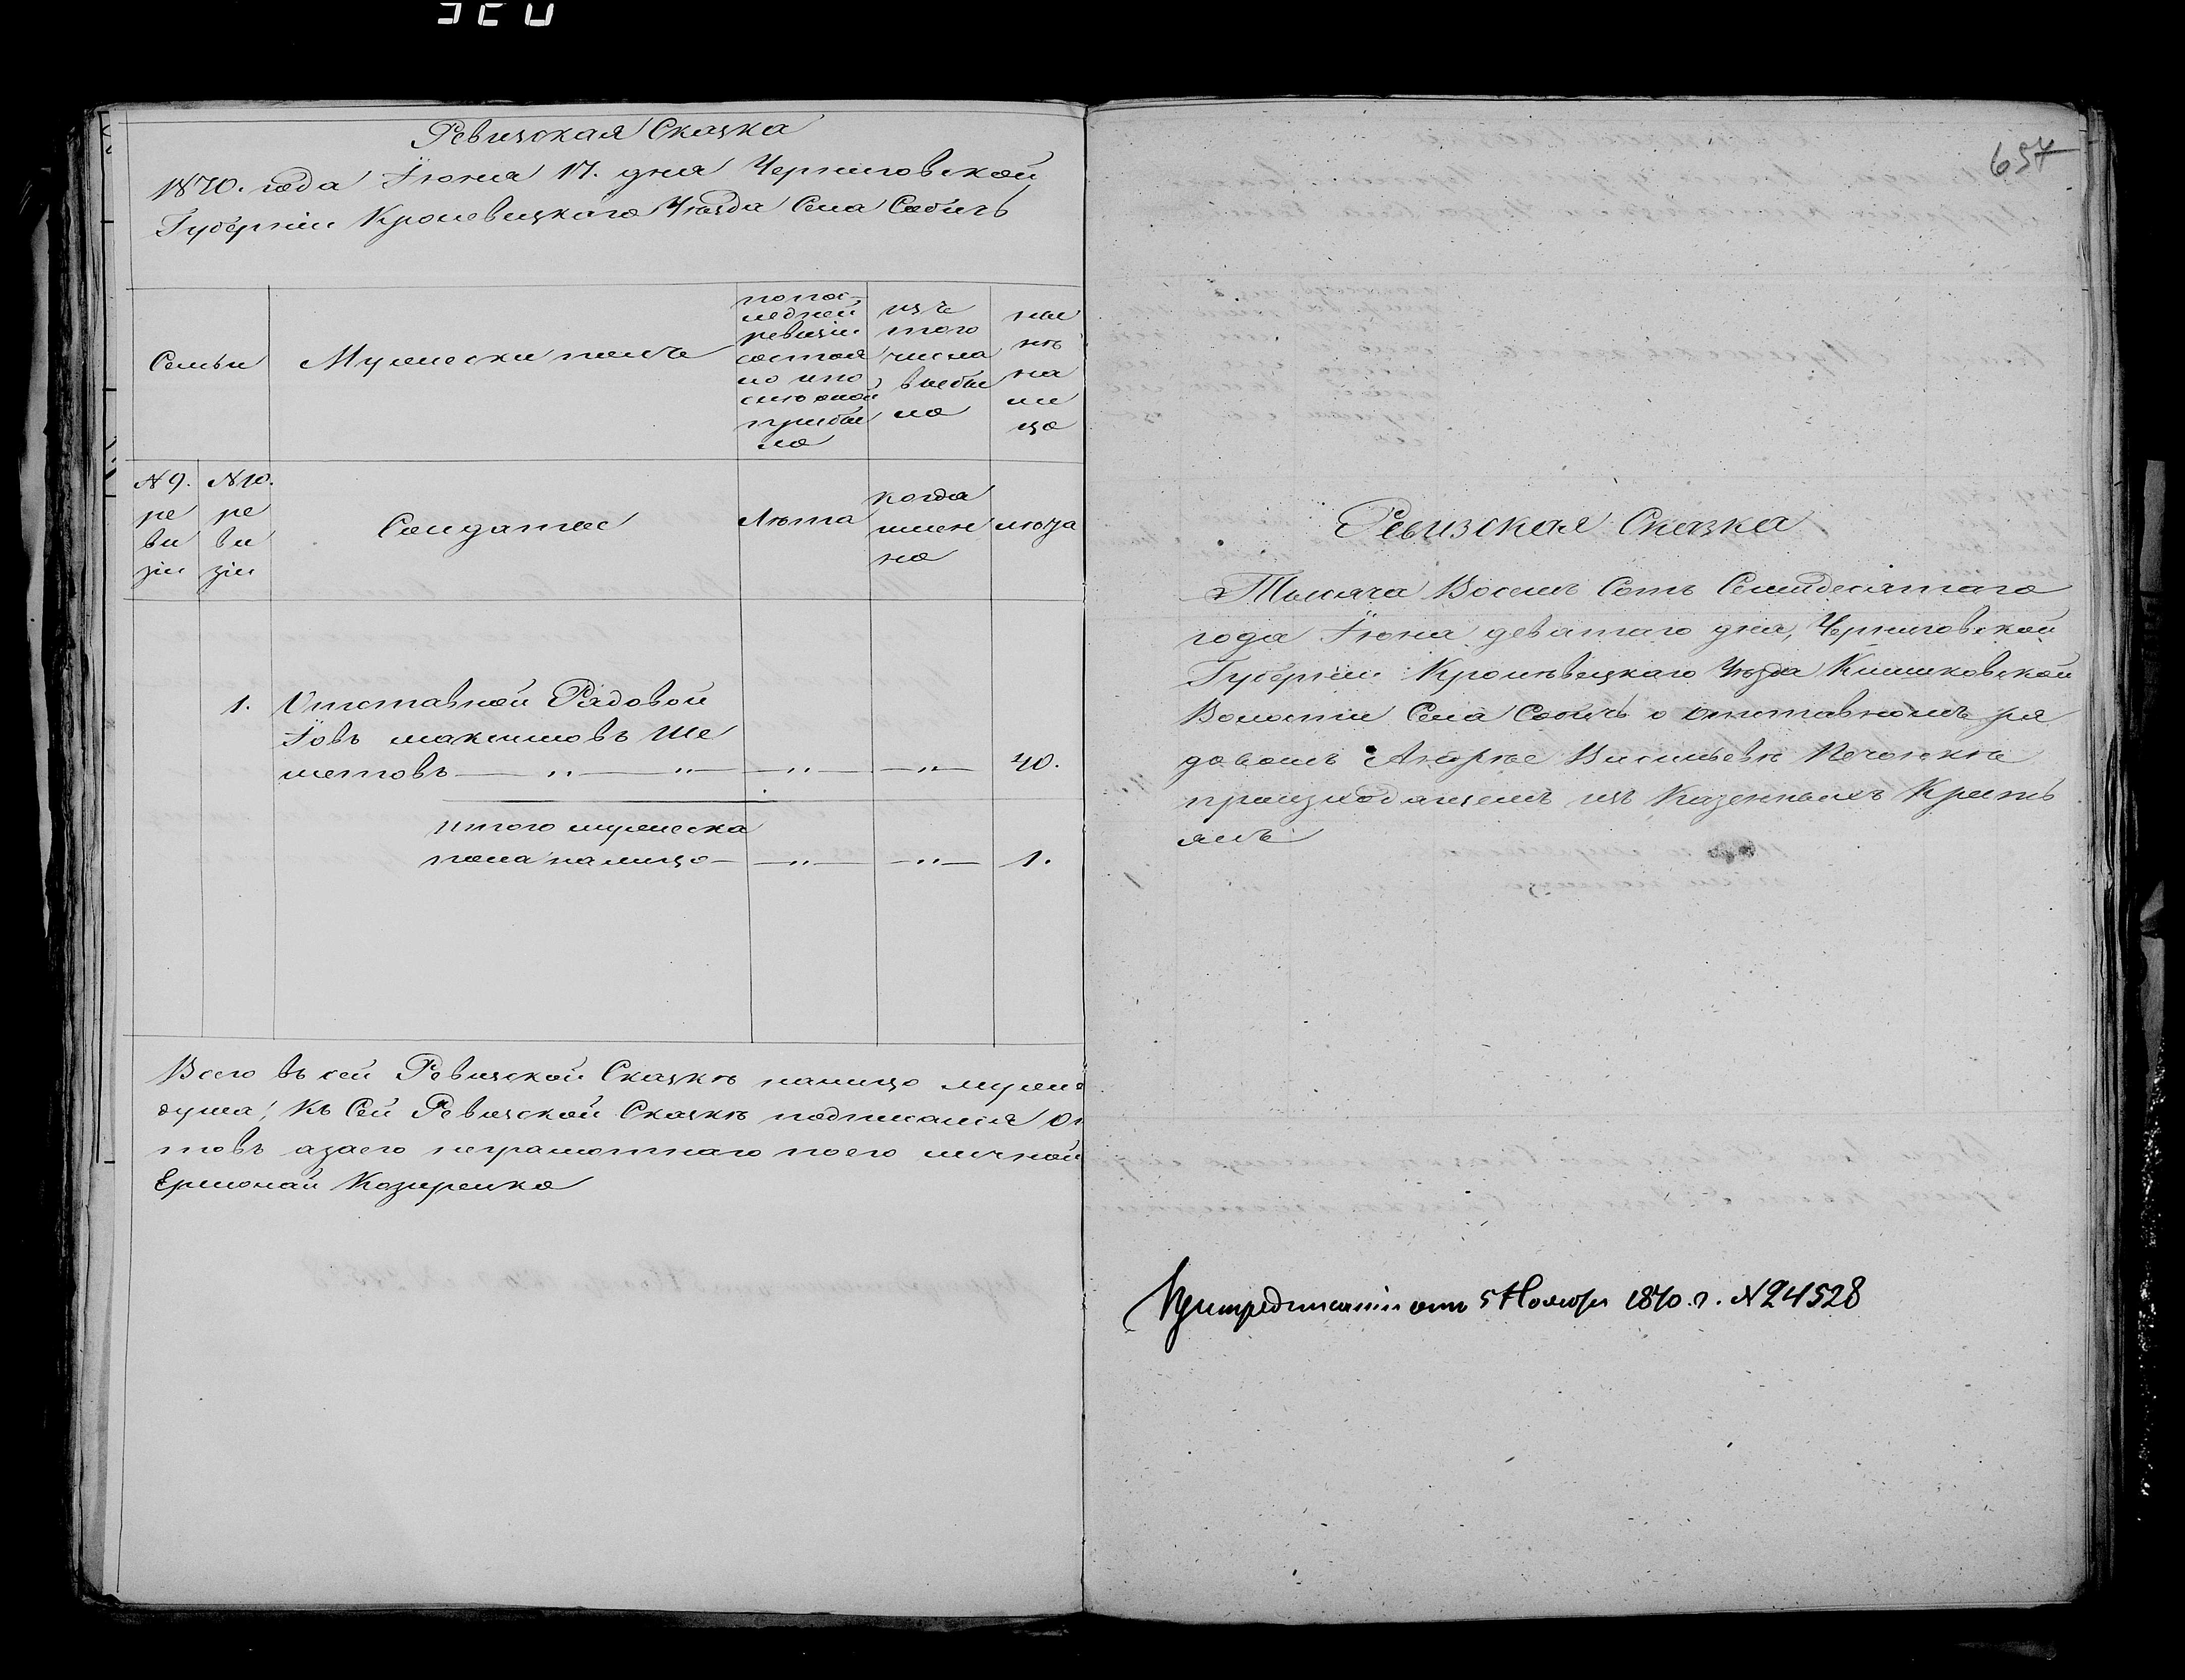 Ревизская Сказка
1870. года Іюня 17. дня Черниговской
Губерніи Кролевецкаго Уезда Села Собичь
Семьи
Мужеской полъ
по пос-
ледней
ревизіи
состоя
ло и по
сле оной
прибы
ло
изъ
того
числа
выбы
ло
ны
не
на
ли
цо
N 9.
ре
ви
зіи
N 10.
ре
ви
зіи
Солдатес
Лета
когда
имен
но
лета
1. Отставной Рядовой
Іовъ максимовъ Ше
метовъ — " — " — " — " — 40.
итого мужеска
пола налицо — " — " — 1.
Всего въ сей Ревизской Сказкѣ налицо муже
душа! Къ Сей Ревизской Сказкѣ подписался
товъ азаего неграмотнаго поего личной
Ермолай Козиренко
657
Ревизская Сказка
Тысяча Восемь Сотъ Семидесятаго
года Іюня девятаго дня, Черниговской
Губерніи Кролѣвецкаго Уѣзда Клишковской
Волости Села Собичь о отставномъ ря
довомъ Андрѣе Васильевѣ
произходящемъ изъ Казенныхъ Кресть
янъ
При предписаніи отъ 5 Ноября 1870. г. N 24528